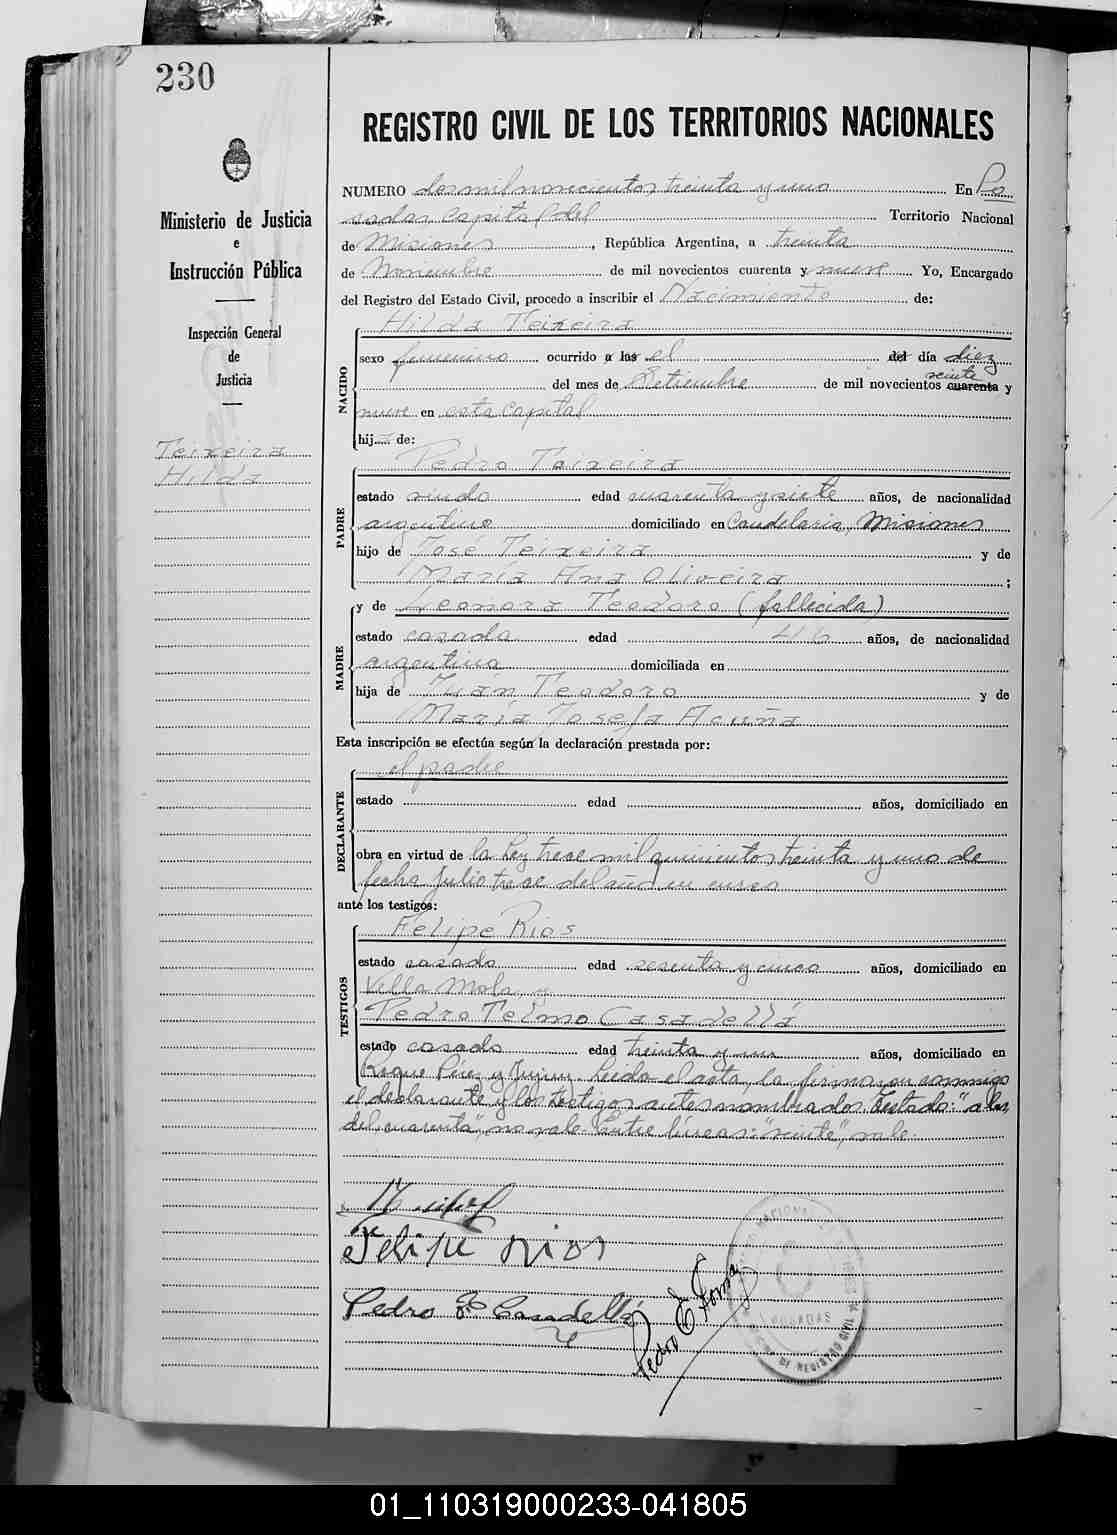 230
REGISTRO CIVIL DE LOS TERRITORIOS NACIONALES
Ministerio de Justicia
e
Instrucción Pública
Inspección General
de
Justicia
Teixeira
Hilda
NUMERO dosmilnovecientos treinta y uno En Po
sadas, Capital del Territorio Nacional
de Misiones, República Argentina, a treinta
de Noviembre de mil novecientos cuarenta y nueve Yo, Encargado
del Registro del Estado Civil, procedo a inscribir el Nacimiento de:
NACIDO
Hilda Teixeira
sexo femenino ocurrido a las el del día diez
veinte
del mes de Setiembre de mil novecientos cuarenta y
nueve en esta Capital
hij de:
PADRE
Pedro Teixeira
estado viudo edad cuarenta y siete años, de nacionalidad
argentino domiciliado en Candelaria, Misiones
hijo de José Teixeira y de
María Ana Oliveira;
MADRE
y de Leonora Teodoro (fallecida)
estado casada edad 46 años, de nacionalidad
argentina domiciliada en
hija de Teodoro y de
María Josefa Acuña
Esta inscripción se efectúa según la declaración prestada por:
DECLARANTE
el padre
estado edad años, domiciliado en
obra en virtud de la Ley trece mil quinientos treinta y uno de
fecha Julio trece del año en curso
ante los testigos:
TESTIGOS
Felipe Rios
estado casado edad sesenta y cinco años, domiciliado en
Villa Mola, y
Pedro Telmo Casadellá
estado casado edad treinta y un años, domiciliado en
Roque Perez y Leida el acta, la firmaron conmigo
el declarante y los testigos antes nombrados. Testado: "a las
del cuarenta", no vale. Entre lineas: "veinte", vale.
Felipe rios
Pedro Casadellá
Pedro E.
POSADAS
01_110319000233-041805